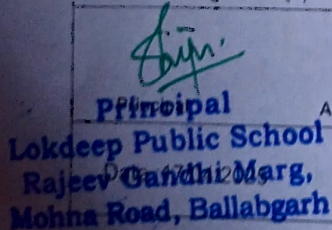 Principal
Lokdeep Public School
Rajeev Gandhi Marg,
Mohna Road, Ballabgarh
A